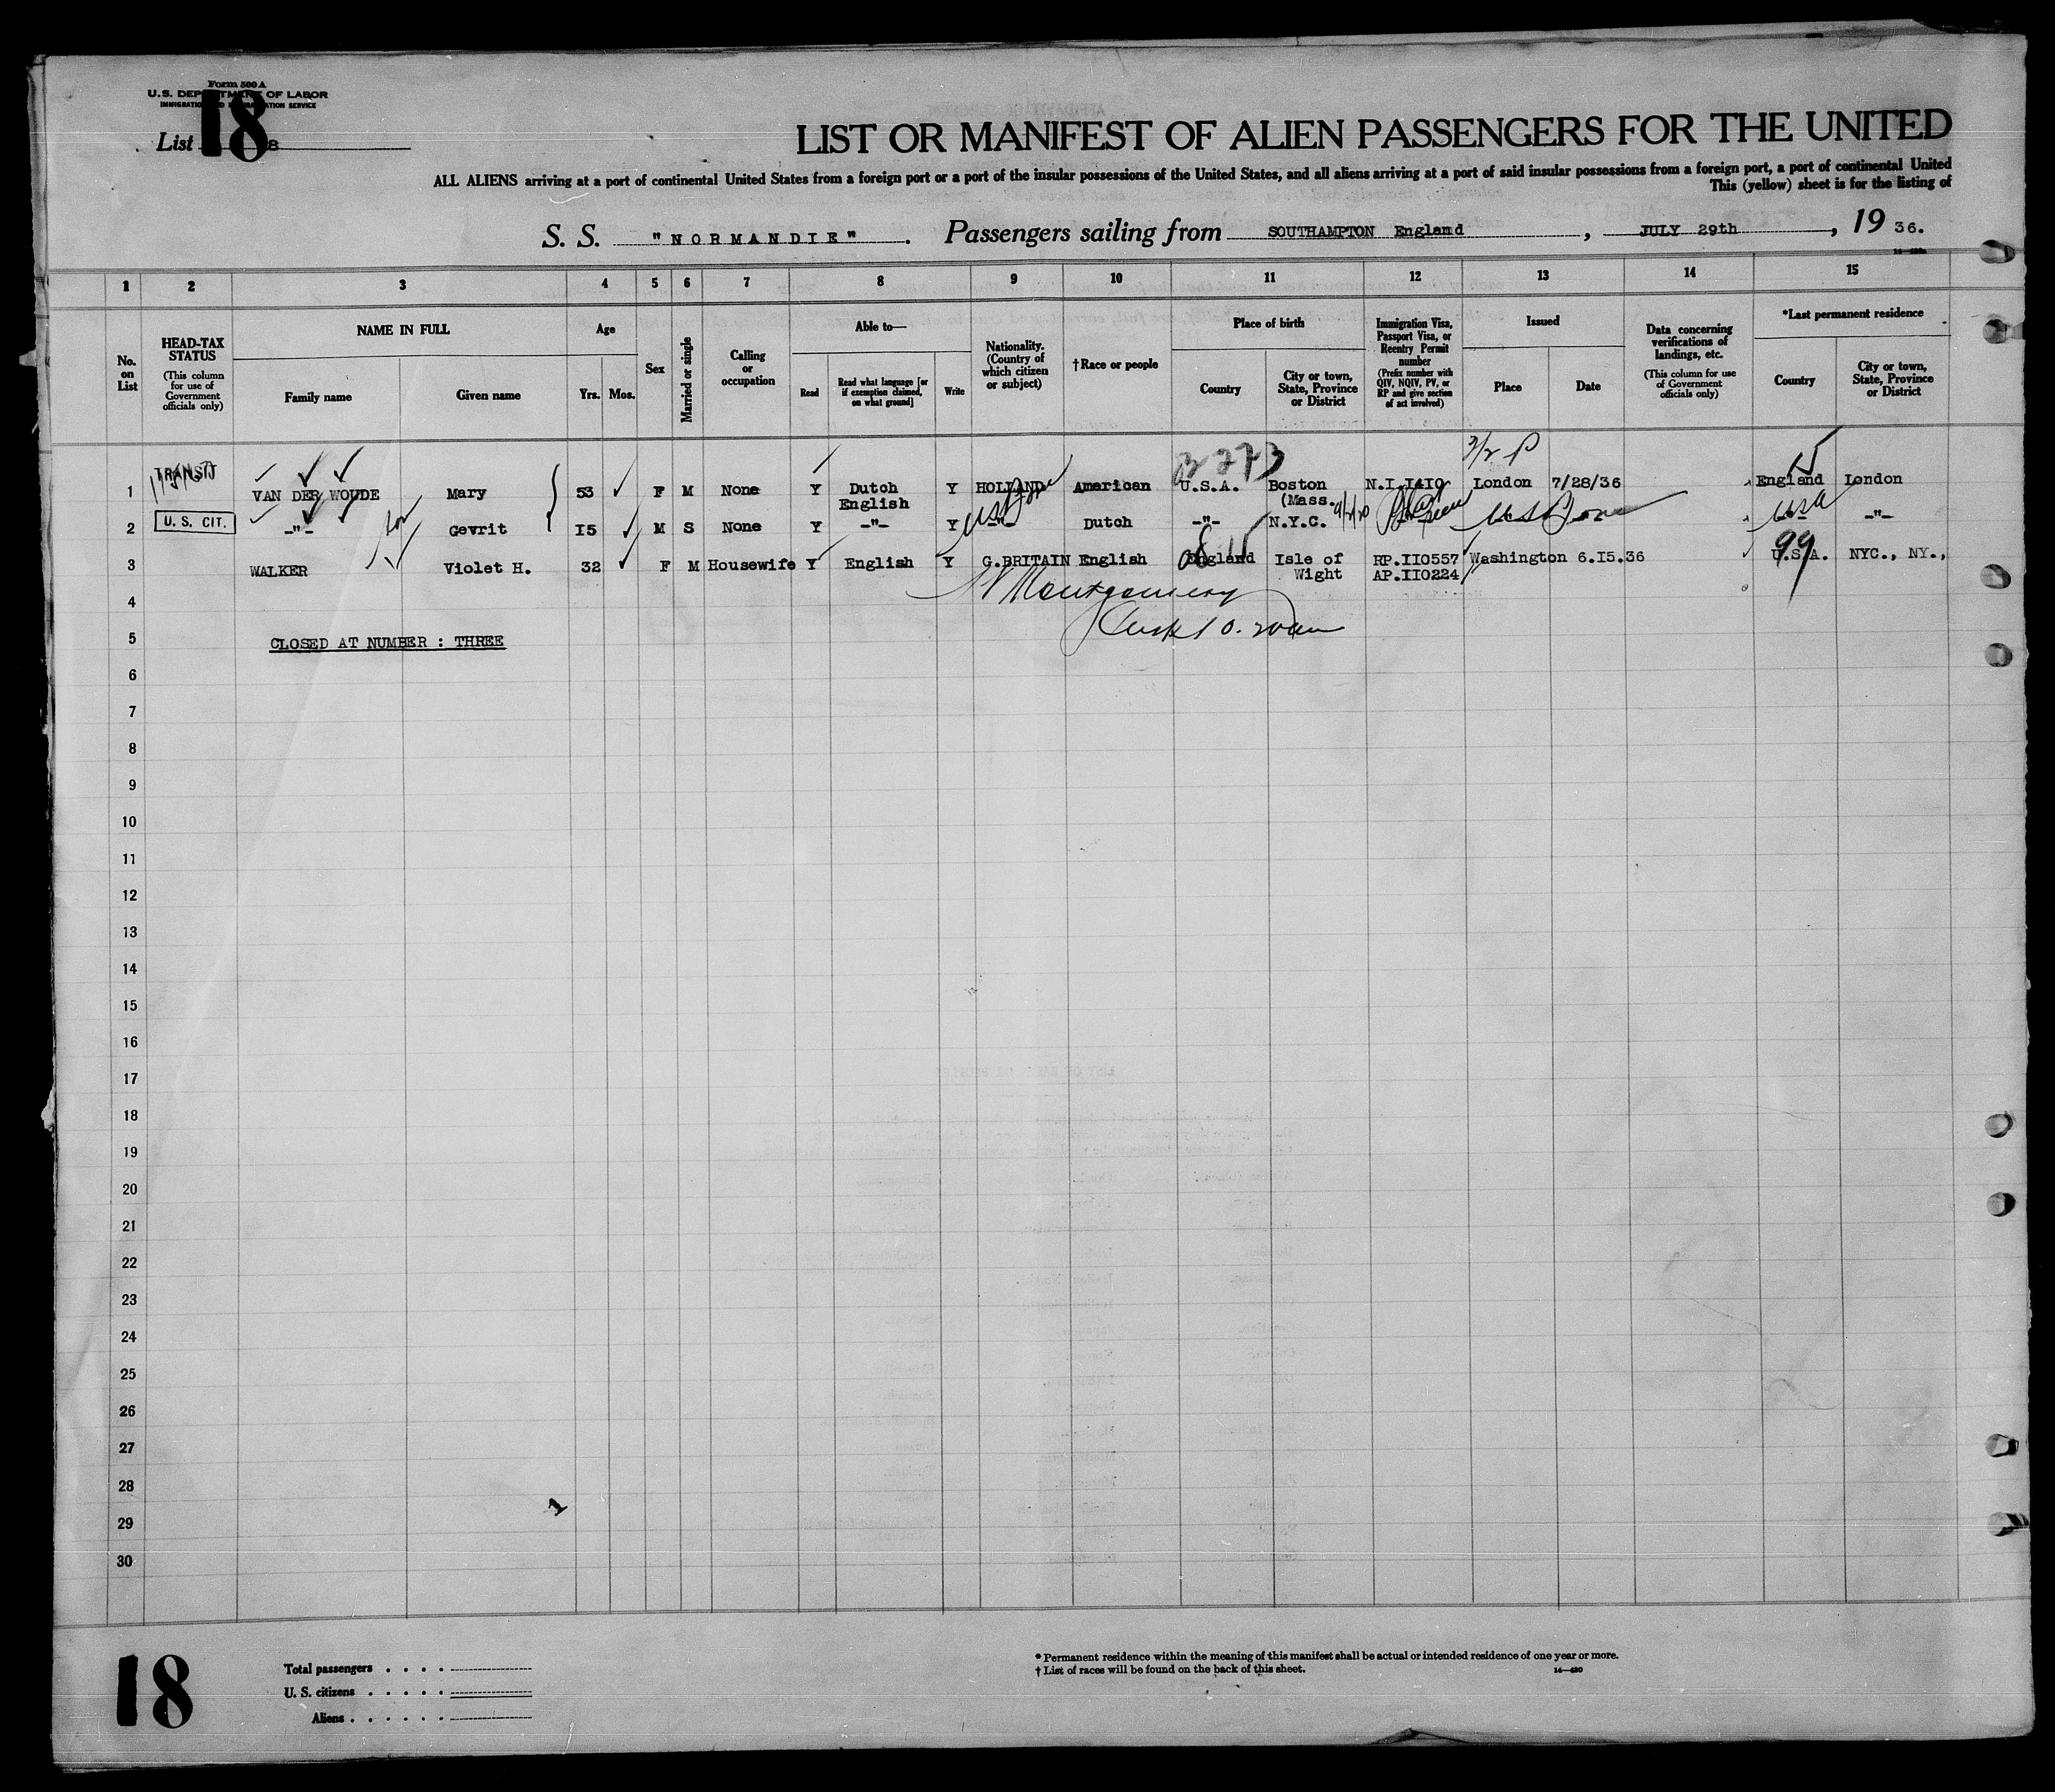 Form 500 A
U.S. DEPARTMENT OF LABOR
IMMIGRATION AND NATURALIZATION SERVICE
List 18
18
LIST OR MANIFEST OF ALIEN PASSENGERS FOR THE UNITED
ALL ALIENS arriving at a port of continental United States from a foreign port or a port of the insular possessions of the United States, and all aliens arriving at a port of said insular possessions from a foreign port, a port of continental United
This (yellow) sheet is for the listing of
S. S. "NORMANDIE" . Passengers sailing from SOUTHAMPTON England , JULY 29th , 19 36.
1 2 3 4 5 6 7 8 9 10 11 12 13 14 15
No. on List
HEAD-TAX STATUS (This column for use of Government officials only)
NAME IN FULL
Family name
Given name
Age
Yrs. Mos.
Sex
Married or single
Calling or occupation
Able to—
Read
Read what language [or if exemption claimed, on what ground]
Write
Nationality. (Country of which citizen or subject)
†Race or people
Place of birth
Country
City or town, State, Province or District
Immigration Visa, Passport Visa, or Reentry Permit number (Prefix number with QIV, NQIV, PV, or RP and give section of act involved)
Issued
Place
Date
Data concerning verifications of landings, etc. (This column for use of Government officials only)
*Last permanent residence
Country
City or town, State, Province or District
1 TRANSIT VAN DER WOUDE Mary 53 F M None Y Dutch English Y HOLLAND American U.S.A. Boston (Mass. N.I.I4I0 London 7/28/36 England London
2 U. S. CIT. -"- Gevrit I5 M S None Y -"- Y -"- Dutch -"- N.Y.C. USA -"-
3 WALKER Violet H. 32 F M Housewife Y English Y G.BRITAIN English England Isle of Wight RP.II0557 AP.II0224 Washington 6.I5.36 U.S.A. NYC., NY.,
99
4 Montgomery
5 CLOSED AT NUMBER : THREE
6
7
8
9
10
11
12
13
14
15
16
17
18
19
20
21
22
23
24
25
26
27
28
29
30
18
Total passengers
U. S. citizens
Aliens
* Permanent residence within the meaning of this manifest shall be actual or intended residence of one year or more.
† List of races will be found on the back of this sheet.
14—430